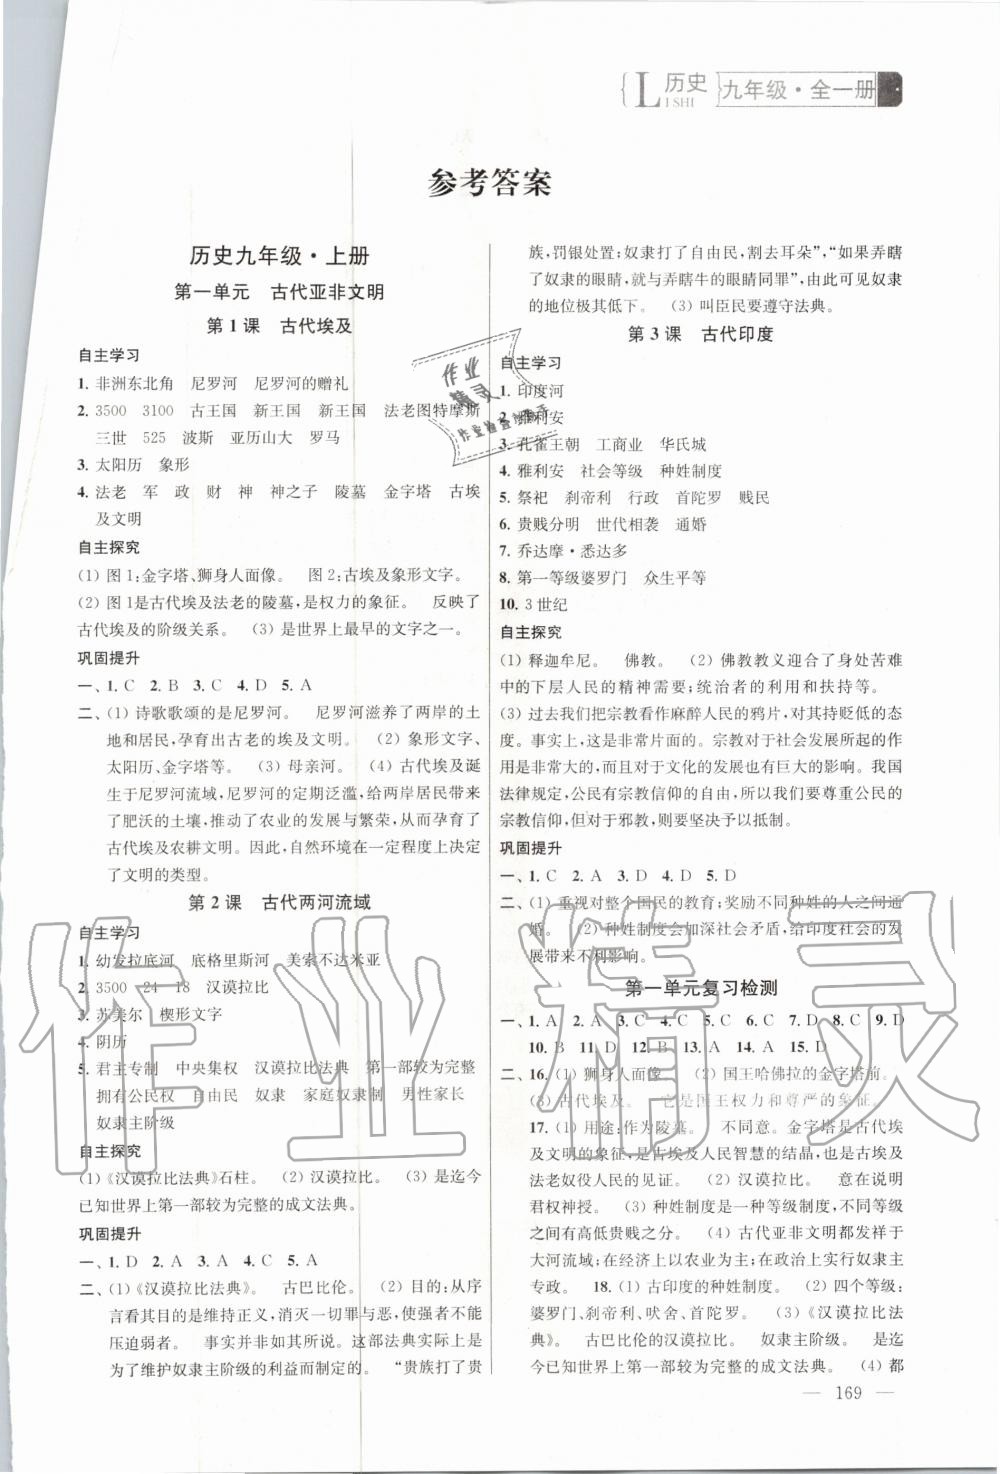 L 历史 ISHI 九年级·全一册
参考答案
历史九年级·上册
第一单元 古代亚非文明
第1课 古代埃及
自主学习
1. 非洲东北角 尼罗河 尼罗河的赠礼
2. 3500 3100 古王国 新王国 新王国 法老图特摩斯
三世 525 波斯 亚历山大 罗马
3. 太阳历 象形
4. 法老 军 政 财 神 神之子 陵墓 金字塔 古埃
及文明
自主探究
(1) 图1:金字塔、狮身人面像。 图2:古埃及象形文字。
(2) 图1是古代埃及法老的陵墓,是权力的象征。 反映了
古代埃及的阶级关系。 (3) 是世界上最早的文字之一。
巩固提升
一、1. C 2. B 3. C 4. D 5. A
二、(1) 诗歌歌颂的是尼罗河。 尼罗河滋养了两岸的土
地和居民,孕育出古老的埃及文明。 (2) 象形文字、
太阳历、金字塔等。 (3) 母亲河。 (4) 古代埃及诞
生于尼罗河流域,尼罗河的定期泛滥,给两岸居民带来
了肥沃的土壤,推动了农业的发展与繁荣,从而孕育了
古代埃及农耕文明。因此,自然环境在一定程度上决定
了文明的类型。
第2课 古代两河流域
自主学习
1. 幼发拉底河 底格里斯河 美索不达米亚
2. 3500 24 18 汉谟拉比
3. 苏美尔 楔形文字
4. 阴历
5. 君主专制 中央集权 汉谟拉比法典 第一部较为完整
拥有公民权 自由民 奴隶 家庭奴隶制 男性家长
奴隶主阶级
自主探究
(1)《汉谟拉比法典》石柱。 (2) 汉谟拉比。 (3) 是迄今
已知世界上第一部较为完整的成文法典。
巩固提升
一、1. D 2. A 3. A 4. C 5. A
二、(1)《汉谟拉比法典》。 古巴比伦。 (2) 目的:从序
言看其目的是维持正义,消灭一切罪与恶,使强者不能
压迫弱者。 事实并非如其所说。这部法典实际上是
为了维护奴隶主阶级的利益而制定的。 “贵族打了贵
族,罚银处置;奴隶打了自由民,割去耳朵”,“如果弄瞎
了奴隶的眼睛,就与弄瞎牛的眼睛同罪”,由此可见奴隶
的地位极其低下。 (3) 叫臣民要遵守法典。
第3课 古代印度
自主学习
1. 印度河
2. 雅利安
3. 孔雀王朝 工商业 华氏城
4. 雅利安 社会等级 种姓制度
5. 祭祀 刹帝利 行政 首陀罗 贱民
6. 贵贱分明 世代相袭 通婚
7. 乔达摩·悉达多
8. 第一等级婆罗门 众生平等
10. 3世纪
自主探究
(1) 释迦牟尼。 佛教。 (2) 佛教教义迎合了身处苦难
中的下层人民的精神需要;统治者的利用和扶持等。
(3) 过去我们把宗教看作麻醉人民的鸦片,对其持贬低的态
度。事实上,这是非常片面的。宗教对于社会发展所起的作
用是非常大的,而且对于文化的发展也有巨大的影响。我国
法律规定,公民有宗教信仰的自由,所以我们要尊重公民的
宗教信仰,但对于邪教,则要坚决予以抵制。
巩固提升
一、1. C 2. A 3. D 4. A 5. D
二、(1) 重视对整个国民的教育;奖励不同种姓的人之间通
婚。 (2) 种姓制度会加深社会矛盾,给印度社会的发
展带来不利影响。
第一单元复习检测
一、1. A 2. A 3. C 4. C 5. C 6. C 7. D 8. C 9. D
10. B 11. D 12. B 13. A 14. A 15. D
二、16. (1) 狮身人面像。 (2) 国王哈佛拉的金字塔前。
(3) 古代埃及。 它是国王权力和尊严的象征。
17. (1) 用途:作为陵墓。 不同意。金字塔是古代埃
及文明的象征,是古埃及人民智慧的结晶,也是古埃及
法老奴役人民的见证。 (2) 汉谟拉比。 意在说明
君权神授。 (3) 种姓制度是一种等级制度,不同等级
之间有高低贵贱之分。 (4) 古代亚非文明都发祥于
大河流域;在经济上以农业为主;在政治上实行奴隶主
专政。 18. (1) 古印度的种姓制度。 (2) 四个等级:
婆罗门、刹帝利、吠舍、首陀罗。 (3)《汉谟拉比法
典》。 古巴比伦的汉谟拉比。 奴隶主阶级。 是迄
今已知世界上第一部较为完整的成文法典。 (4) 都
— 169 —
作业精灵
作业
精灵
作业检查小助手